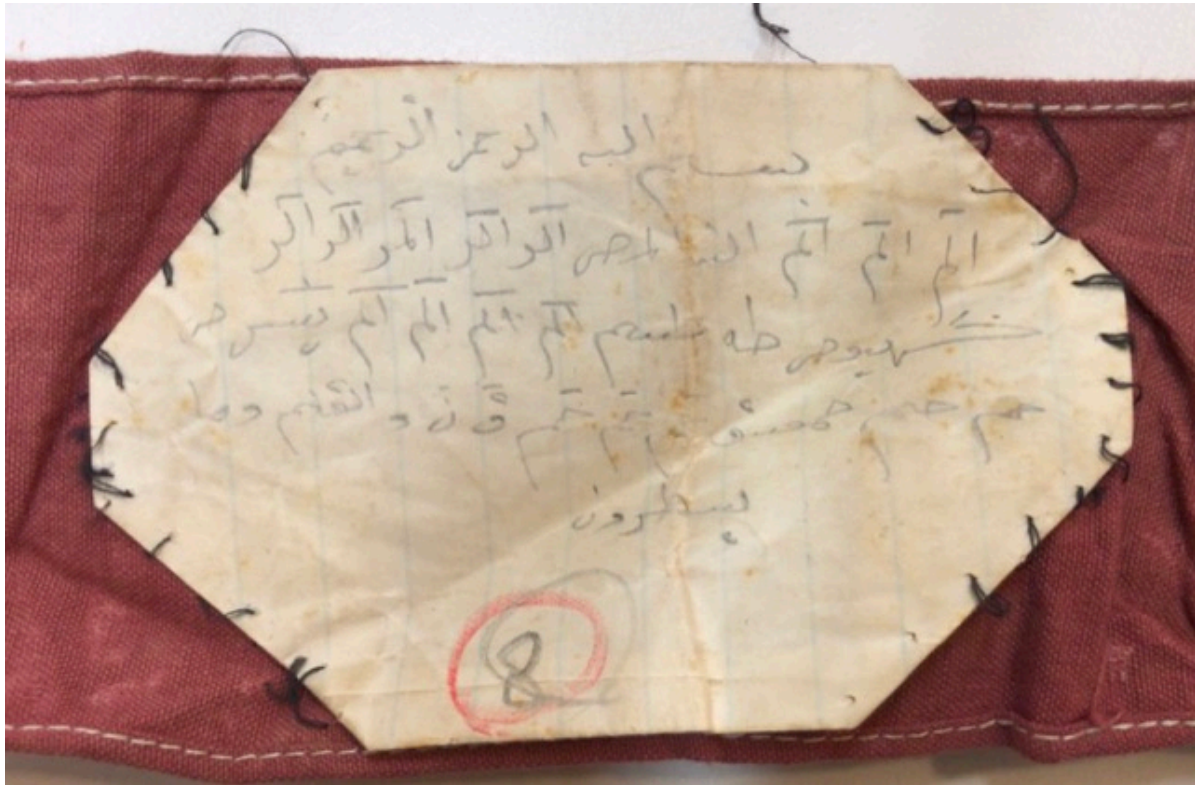 بسم الله الرحمن الرحيم
الٓم الٓم الٓم المص الٓر الٓر الٓمر الٓر الٓر
كهيعص طه طسم الٓم الٓم الٓم الٓم يٓس ص
حم حم حم حمعسق حم حم قٓ نٓ و القلم وما
يسطرون
8